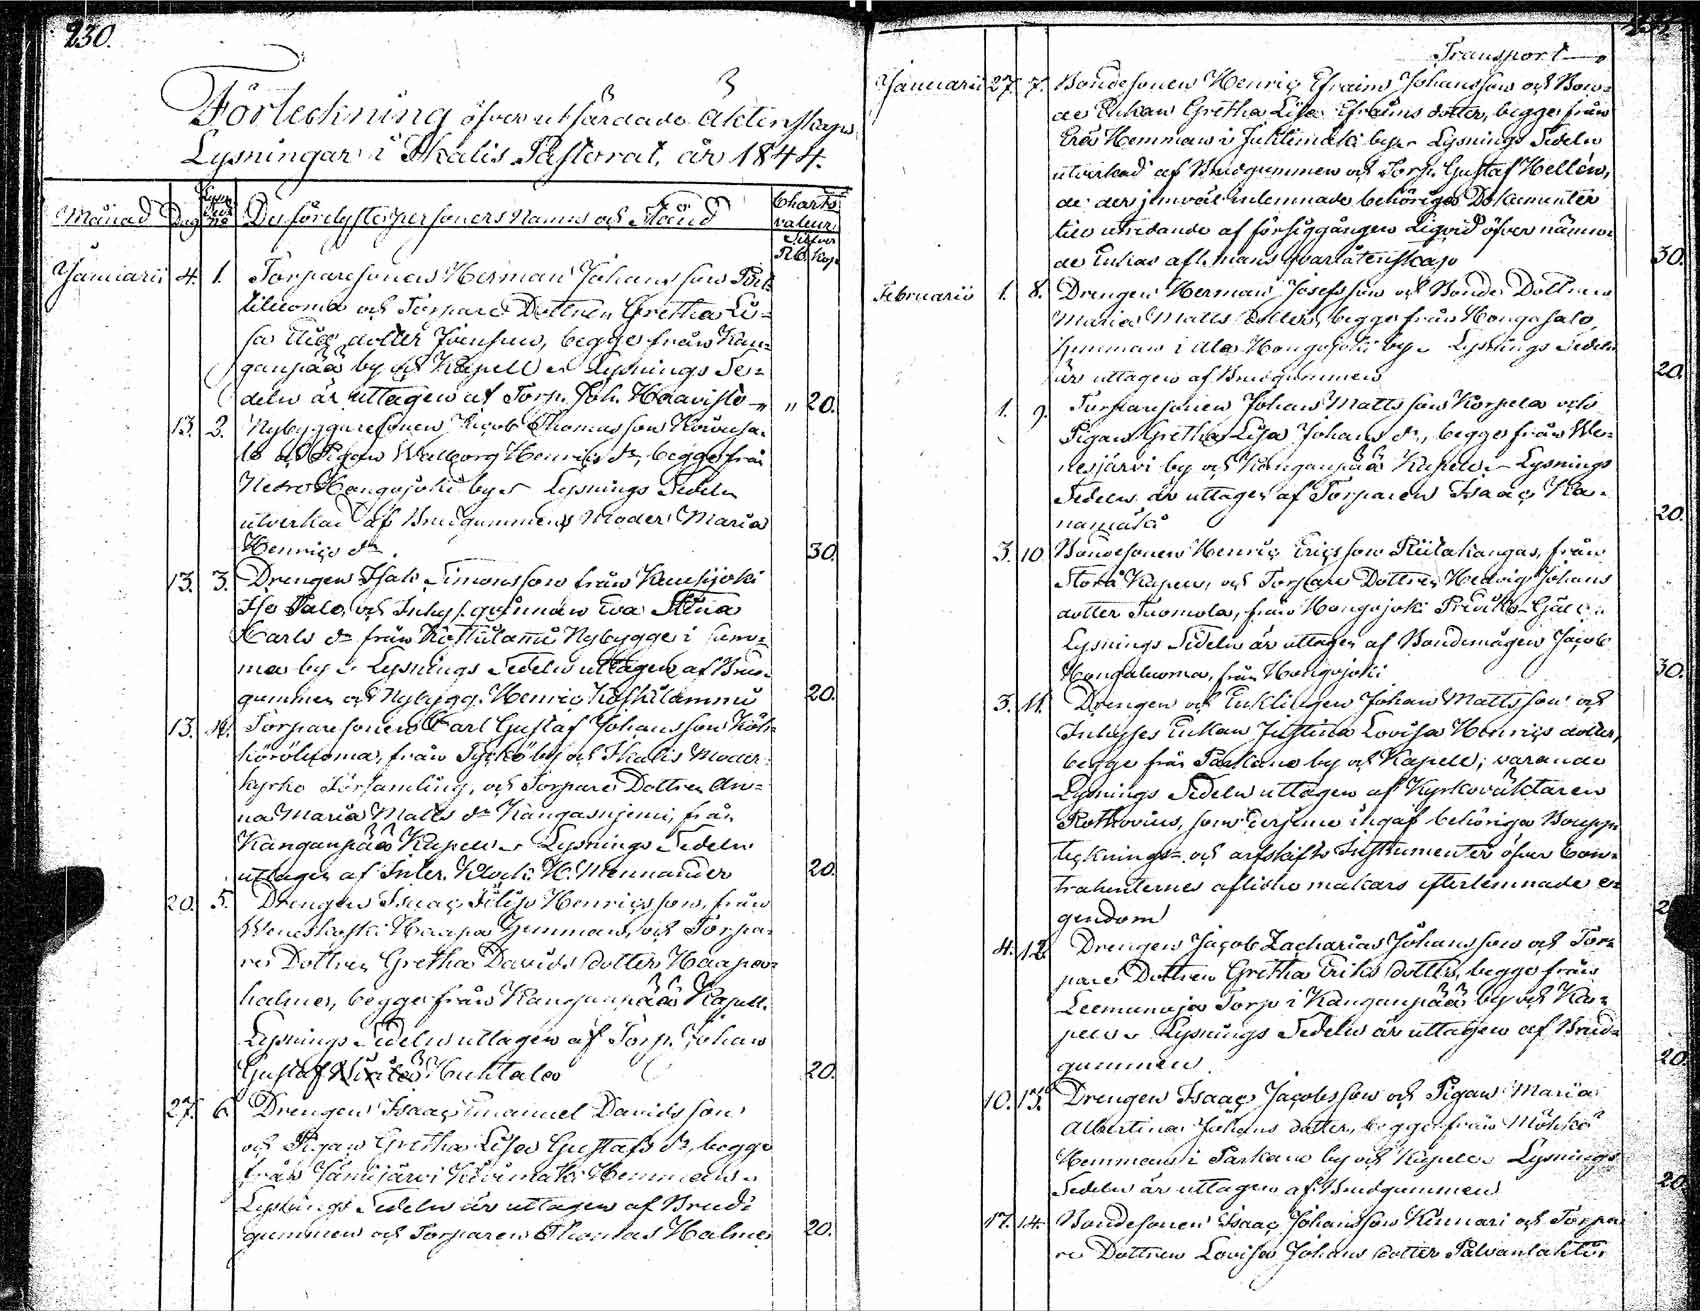 230.
Förteckning öfver utfärdade Äktenskaps
Lysningar i Ikalis Pastorat, år 1844.
Månad Dag Lysn. Sed. No De förelyste personers namn och Stånd Charts valeur. Silfver Rb. Kop.
Januarii 4. 1. Torparesonen Herman Johansson
och Torpare Dottren Gretha Li-
sa dotter begge från Kan-
ganpää by och Kapell. Lysnings Se-
deln är uttagen af Torp. Joh. Haavisto " 20.
13. 2. Nybyggaresonen Jacob Thomasson
och Pigan Walborg Henrics dr, begge från
Nedre Hongojoki by. Lysnings Sedeln
utverkad af Brudgummens Moder Maria
Henrics dr. 30.
13. 3. Drengen Isak Simonsson från
Iso Talo, och Inhys. qvinnan Eva Stina
Carls dr från Nybygge i sam-
ma by. Lysnings Sedeln uttagen af Brud-
gummen och Nybygg. Henric 20.
13. 4. Torparesonen Carl Gustaf Johansson
från by och Ikalis Moder-
kyrko Församling, och Torpare Dottren An-
na Maria Matts dr Kangasniemi, från
Kanganpää Kapell. Lysnings Sedeln
uttagen af H. Mennander 20.
20. 5. Drengen Isaac Filip Henricsson, från
Haapa Hemman, och Torpa-
re Dottren Gretha Davids dotter Haapa-
halme, begge från Kanganpää Kapell.
Lysnings Sedeln uttagen af Torp. Johan
Gustaf Huhtala 20.
27. 6. Drengen Isaac Emanuel Davidsson
och Pigan Gretha Lisa Gustafs dr, begge
från Jämijärvi Hemman.
Lysnings Sedeln är uttagen af Brud-
gummen och Torparen Thomas Halme 20.
Transport
Januarii 27. 7. Bondesonen Henric Efraim Johansson och Bon-
de Enkan Gretha Lisa Efraims dotter, begge från
Hemman i by. Lysnings Sedeln
utverkad af Brudgummen och Torp. Gustaf Hellén,
de der jemväl inlemnade behöriga Dokumenter
till utredande af försiggången Liqvid öfver nämn-
de Enkas afl. mans qvarlåtenskap 30.
Februarii 1. 8. Drengen Herman Josefsson och Bonde Dottren
Maria Matts dotter, begge från Hongosalo
hemman i Ala Hongojoki by. Lysnings Sedeln
är uttagen af Brudgummen 20.
1. 9. Torparesonen Johan Mattsson Korpela och
Pigan Gretha Lisa Johans dr, begge från We-
nesjärvi by och Kanganpää Kapell. Lysnings
Sedeln är uttagen af Torparen Isaac Ka-
namäki 20.
3. 10. Bondesonen Henric Ericsson Riitakangas, från
Storå Kapell, och Torpare Dottren Hedvig Johans
dotter Tuomola, från Hongojoki
Lysnings Sedeln är uttagen af Bondemågen Jacob
Hongaluoma, från Hongojoki 30.
3. 11. Drengen och Enklingen Johan Mattsson och
Inhyses Enkan Justina Lovisa Henrics dotter,
begge från Parkano by och Kapell; varande
Lysnings Sedeln uttagen af Kyrkoväktaren
Rothovius, som derjemte ingaf behöriga Boupp-
tecknings- och arfskifts Instrumenter öfver Con-
trahenternes aflidne makars efterlemnade e-
gendom
4. 12. Drengen Jacob Zacharias Johansson och Tor-
pare Dottren Gretha Eriks dotter, begge från
Leemunoja Torp i Kanganpää by och Ka-
pell. Lysnings Sedeln är uttagen af Brud-
gummen. 20.
10. 13. Drengen Isaac Jacobsson och Pigan Maria
Albertina Johans dotter, begge från
Hemman i Parkano by och Kapell. Lysnings
Sedeln är uttagen af Brudgummen 20.
17. 14. Bondesonen Isaac Johansson Kinnari och Torpa-
re Dottren Lovisa Johans dotter